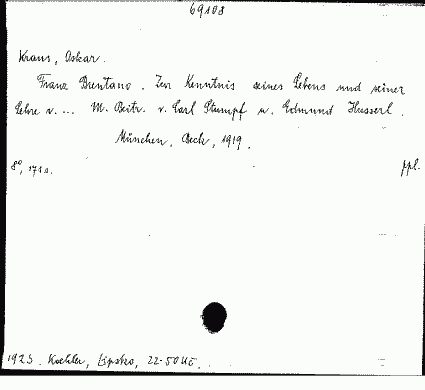 69108
Kraus, Oskar.
Franz Brentano. Zur Kenntnis seines Lebens und seiner
Lehre v. ... M. Beitr. v. Carl Stumpf u. Edmund Husserl.
München, Beck, 1919.
8°, 171 s. ppl.
1923. Koehler, Lipsko, 22·50 Kč.